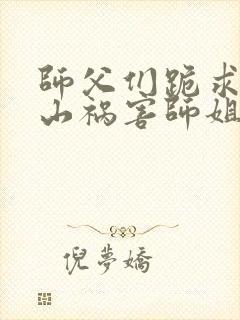 師父们跪求
山祸害師姐
倪夢嬌